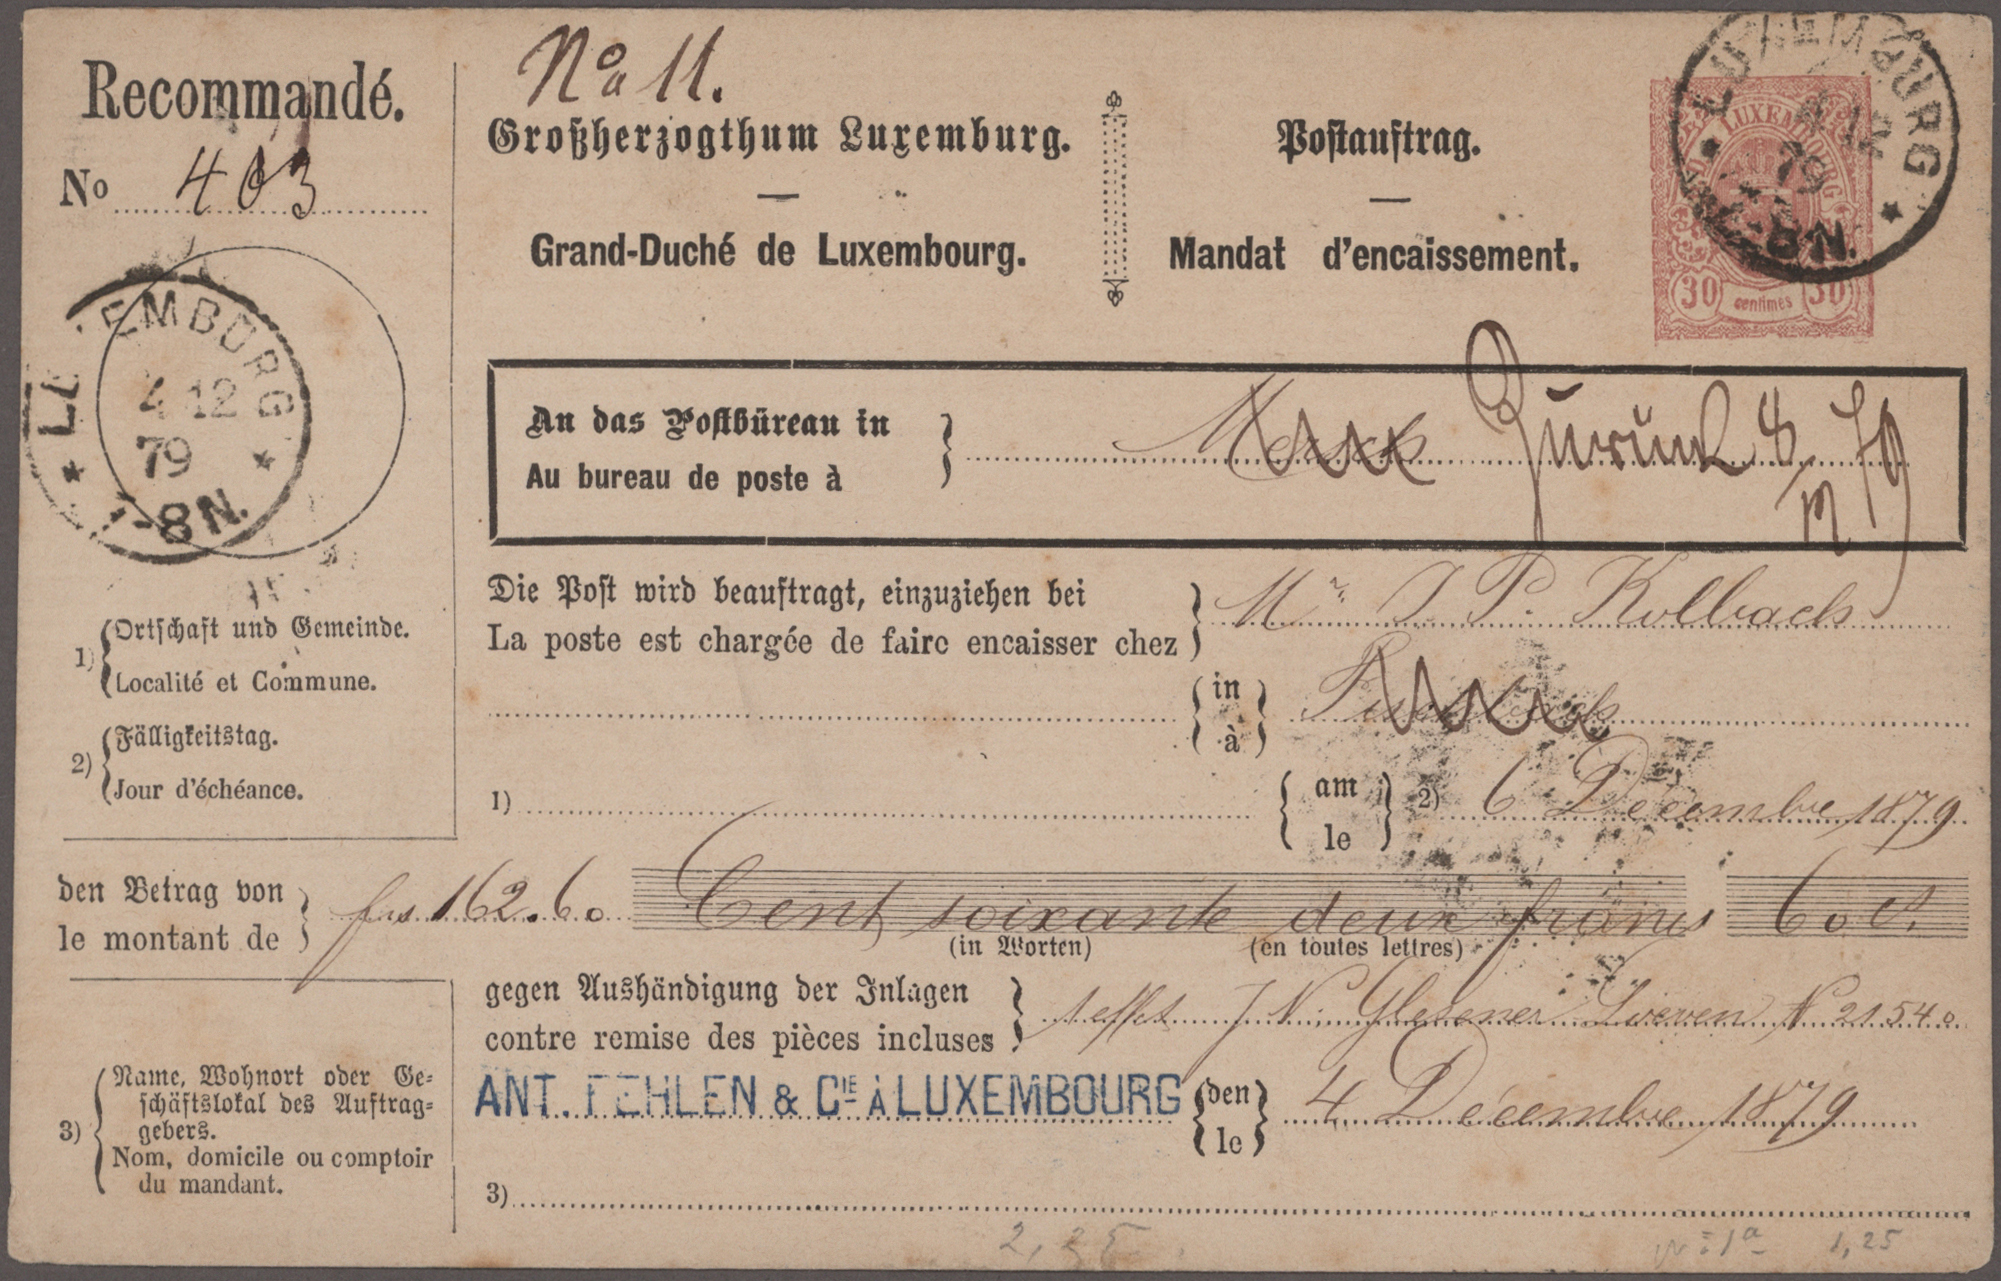 No 11.
Recommandé.
No 403
Großherzogthum Luxemburg.
Grand-Duché de Luxembourg.
Postauftrag.
Mandat d'encaissement.
LUXEMBURG
4 12
79
7-8N.
LUXEMBOURG
30 centimes 30
LUXEMBURG
4 12
79
7-8N.
An das Postbüreau in
Au bureau de poste à
Mersch Zurück 8/12 79
Die Post wird beauftragt, einzuziehen bei
La poste est chargée de faire encaisser chez
Mr J. P. Kolbach
in
à
1) Ortschaft und Gemeinde.
Localité et Commune.
2) Fälligkeitstag.
Jour d'échéance.
1)
am
le
2) 6 Décembre 1879
den Betrag von
le montant de
frs 162.60 Cent soixante deux francs 60 c.
(in Worten) (en toutes lettres)
gegen Aushändigung der Inlagen
contre remise des pièces incluses
1 effet J. N. Glesener N 21540
ANT. FEHLEN & CIE À LUXEMBOURG
den
le
4 Décembre 1879
3) Name, Wohnort oder Ge-
schäftslokal des Auftrag-
gebers.
Nom, domicile ou comptoir
du mandant.
3)
1,25